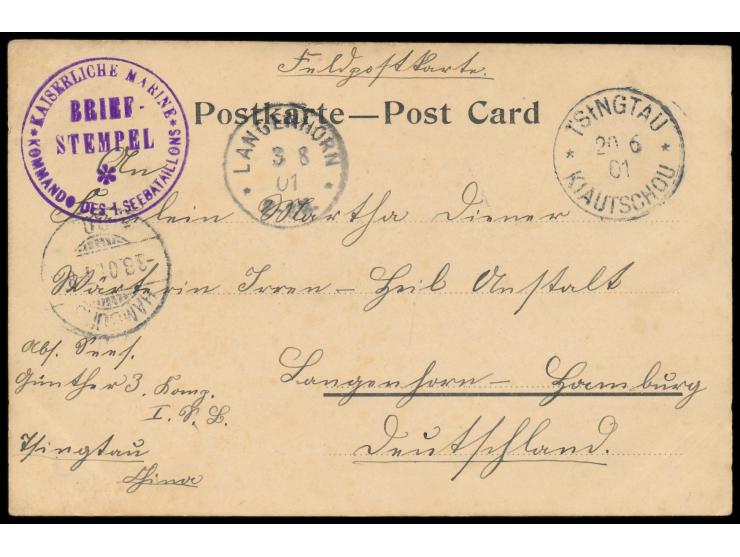 Feldpostkarte.
Postkarte—Post Card
* KAISERLICHE MARINE *
BRIEF-
STEMPEL
KOMMANDO DES 1. SEEBATAILLONS
* LANGENHORN *
3 8
01
TSINGTAU
* 29 6 *
01
KIAUTSCHOU
HAMBURG
-3.8.01
An
Fräulein Martha Diener
Wärterin Irren-Heil Anstalt
Langenhorn - Hamburg
Deutschland.
Abs. Sees.
Günther 3. Komp.
I. S. B.
Tsingtau
China